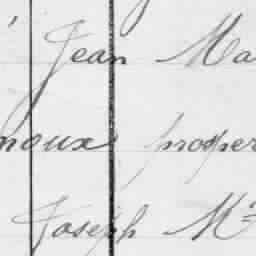 Jean Ma
noux prosper
Joseph M